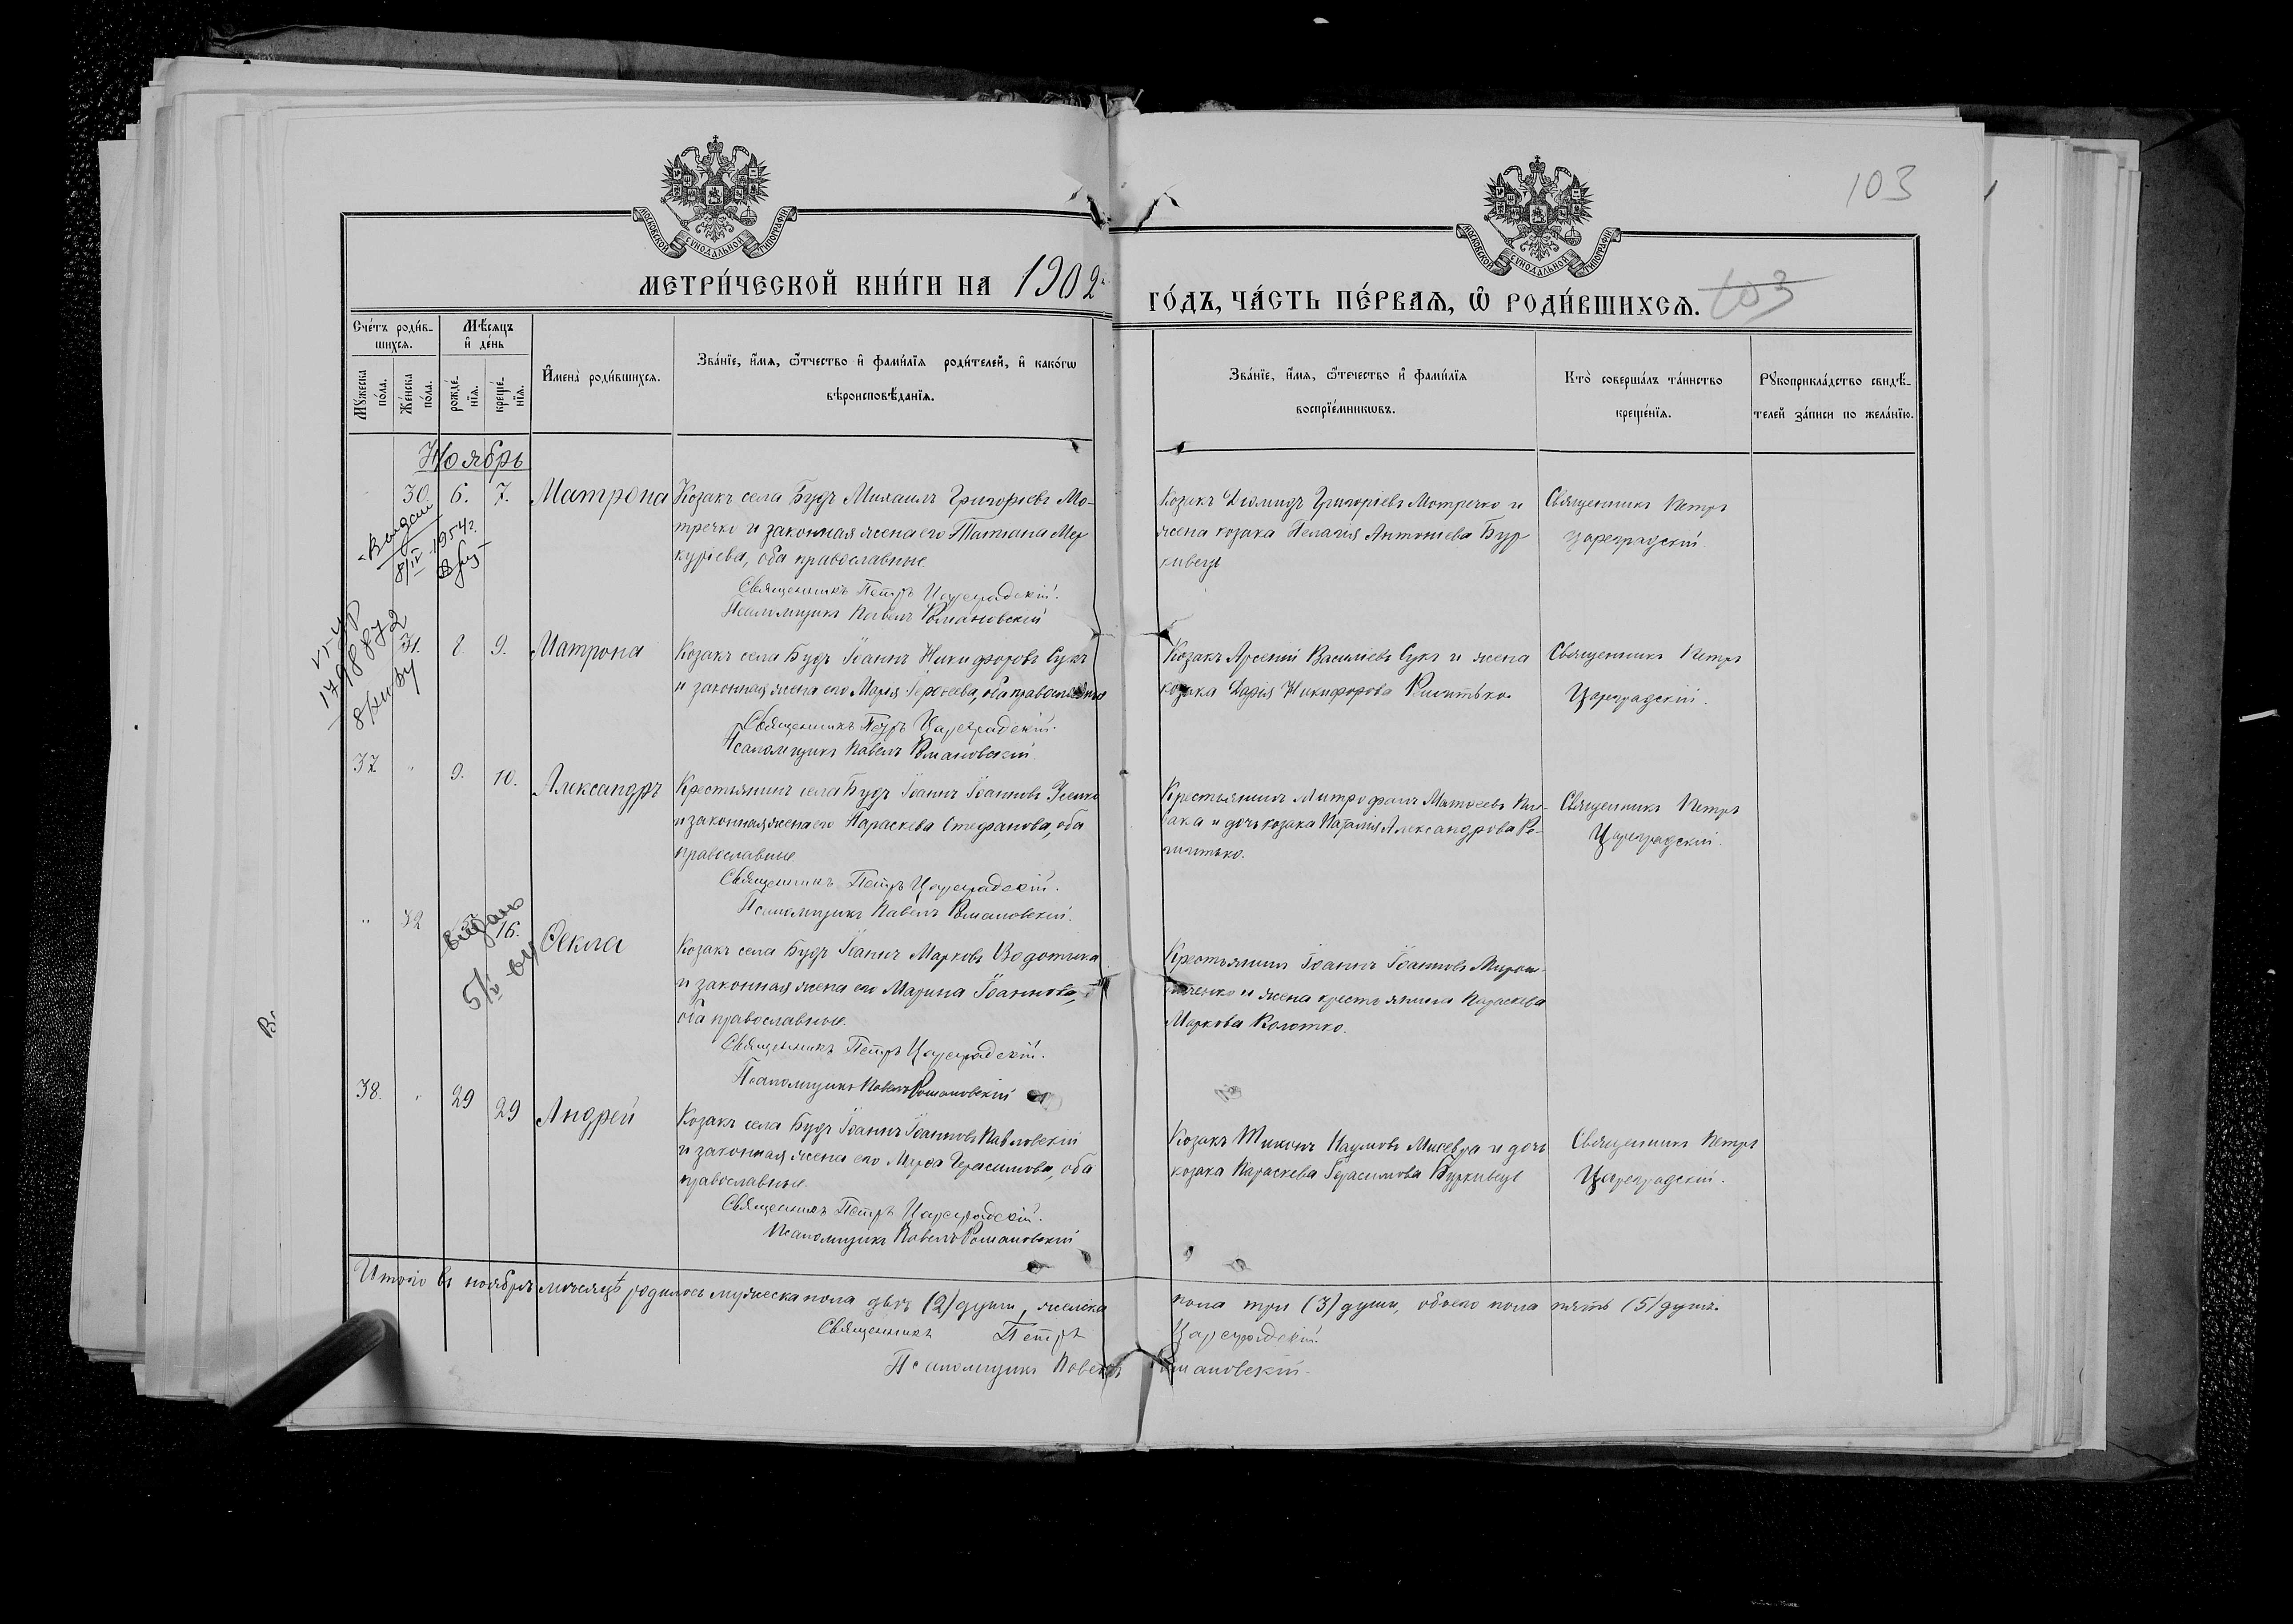 103
МОСКОВСКОЙ СУНОДАЛЬНОЙ ТИПОГРАФІИ
МОСКОВСКОЙ СУНОДАЛЬНОЙ ТИПОГРАФІИ
МЕТРИ́ЧЕСКОЙ КНИ́ГИ НА 1902
ГО́ДЪ, ЧА́СТЬ ПЕ́РВАѦ, Ѡ҆ РОДИ́ВШИХСѦ. 103
Сче́тъ роди́в-
шихсѧ.
Мѣ́сѧцъ
и҆ де́нь
Мꙋ́жеска
по́ла.
Же́нска
по́ла.
рожде́-
нїѧ.
креще́-
нїѧ.
И҆мена̀ роди́вшихсѧ.
Зва́нїе, и҆́мѧ, ѻ҆́тчество и҆ фами́лїѧ роди́телей, и҆ како́гѡ
вѣроисповѣ́данїѧ.
Зва́нїе, и҆́мѧ, ѻ҆́течество и҆ фами́лїѧ
воспрїе́мникѡвъ.
Кто̀ соверша́лъ та́инство
креще́нїѧ.
Рꙋкоприкла́дство свидѣ́-
телей за́писи по жела́нїю.
Ноябрь
30. 6. 7. Матрона
Козакъ села Будъ Михаилъ Григорьевъ Мо-
тречко и законная жена его Татіана Мер
куріева, оба православные.
Священникъ Петръ Цареградскій.
Псаломщикъ Павелъ Романовскій
Козакъ Діомидъ Григоріевъ Мотречко и
жена козака Пелагія Антоніева Бур
кивець
Священникъ Петръ
Цареградскій.
8/IV 1954г.
179887
31. 8. 9. Матрона
Козакъ села Будъ Іоаннъ Никифоровъ Сукъ
и законная жена его Марія, оба православные
Священникъ Петръ Цареградскій.
Псаломщикъ Павелъ Романовскій.
Козакъ Арсеній Василіевъ Сукъ и жена
козака Дарія Никифорова
Священникъ Петръ
Цареградскій.
37. " 9. 10. Александръ
Крестьянинъ села Будъ Іоаннъ Іоанновъ Усенко
и законная жена его Параскева Стефанова, оба
православные.
Священникъ Петръ Цареградскій.
Псаломщикъ Павелъ Романовскій.
Крестьянинъ Митрофанъ Матвеевъ
и дочь козака Наталія Александрова Ре-
Священникъ Петръ
Цареградскій.
" 32 16. Ѳекла
выдано
Козакъ села Будъ Іоаннъ Марковъ Водотыка
и законная жена его Марина Іоаннова,
оба православные.
Священникъ Петръ Цареградскій.
Псаломщикъ Павелъ Романовскій
Крестьянинъ Іоаннъ Іоанновъ Мирош-
ниченко и жена крестьянина Параскева
Маркова Колотко.
38. " 29 29 Андрей
Козакъ села Будъ Іоаннъ Іоанновъ Павловскій
и законная жена его Марѳа Герасимова, оба
православные.
Священникъ Петръ Цареградскій.
Псаломщикъ Павелъ Романовскій
Козакъ Тихонъ Наумовъ Мисевра и дочь
козака Параскева Герасимова Буркивець
Священникъ Петръ
Цареградскій.
Итого въ ноябрѣ мѣсяцѣ родилось мужеска пола двѣ (2) души, женска
пола три (3) души, обоего пола пять (5) душъ.
Священникъ Петръ Цареградскій.
Псаломщикъ Павелъ Романовскій.